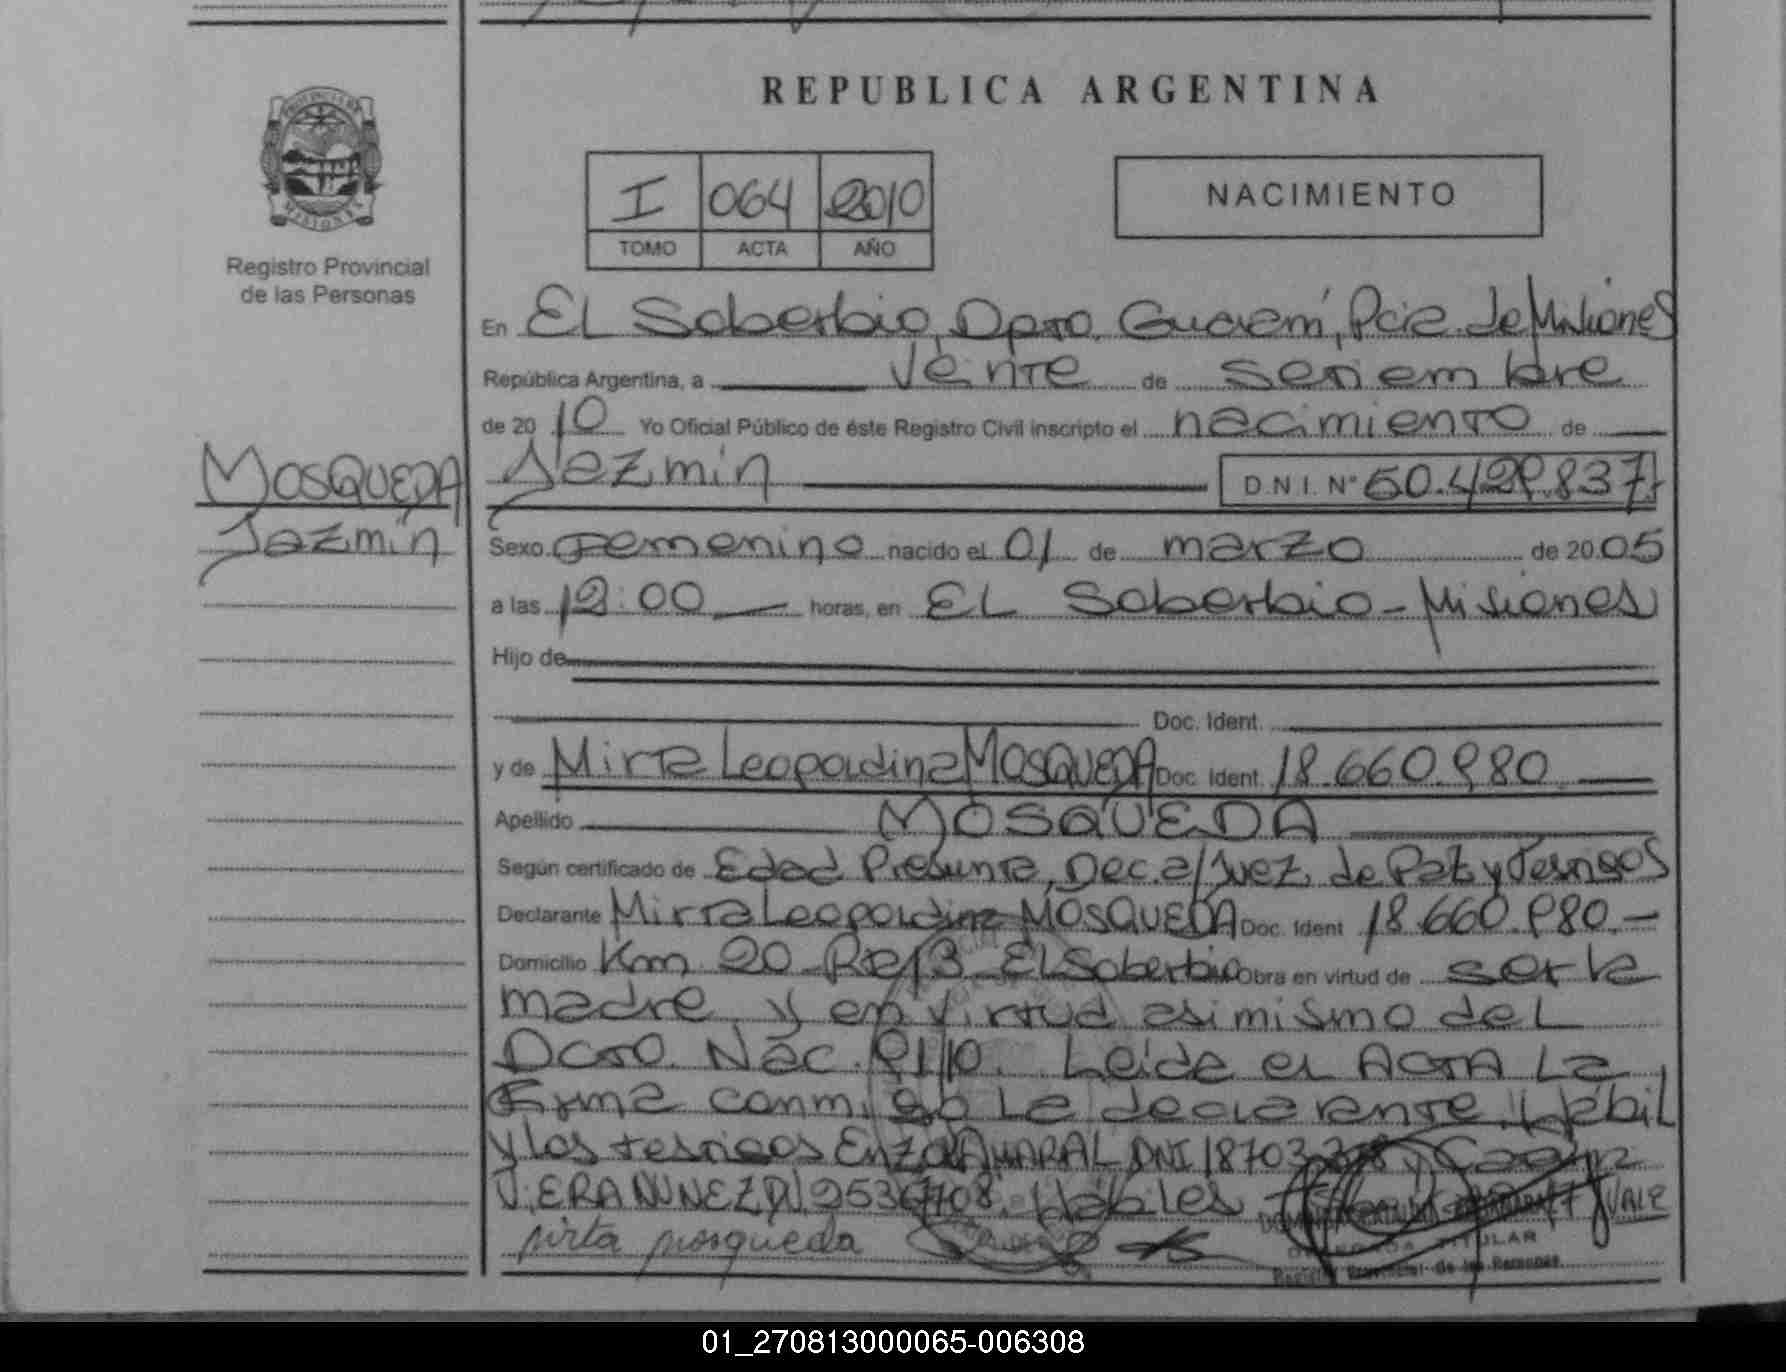 REPUBLICA ARGENTINA
I 064 2010
TOMO ACTA AÑO
NACIMIENTO
PROVINCIA DE
MISIONES
Registro Provincial
de las Personas
MOSQUEDA
Jazmín
En EL Soberbio, Dpto. Guaraní, Pcia. de Misiones
República Argentina, a veinte de setiembre
de 2010 Yo Oficial Público de éste Registro Civil inscripto el nacimiento de
Jazmín D.N.I. N° 50.429.837
Sexo Femenino nacido el 01 de marzo de 2005
a las 12:00 horas, en EL Soberbio - Misiones
Hijo de
Doc. Ident.
y de Mirta Leopoldina MOSQUEDA Doc. Ident. 18.660.980
Apellido MOSQUEDA
Según certificado de Edad Presunta, Dec. a/Juez de Paz y Testigos
Declarante Mirta Leopoldina MOSQUEDA Doc. Ident 18.660.980.-
Domicilio Km 20 - El Soberbio Obra en virtud de ser la
madre, y en virtud asimismo del
Dcto. Nac. 91/10. Leida el ACTA La
Firma conmigo La declarante, Hábil
y los testigos DNI 18703 y
VIERA NUNEZ Hábiles VALE
mirta mosqueda
TITULAR
Registro Provincial de las Personas
01_270813000065-006308